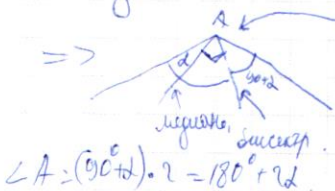 =>
A
α
90+α
медиана,
биссектр.
∠A = (90°+α)·2 = 180°+2α.